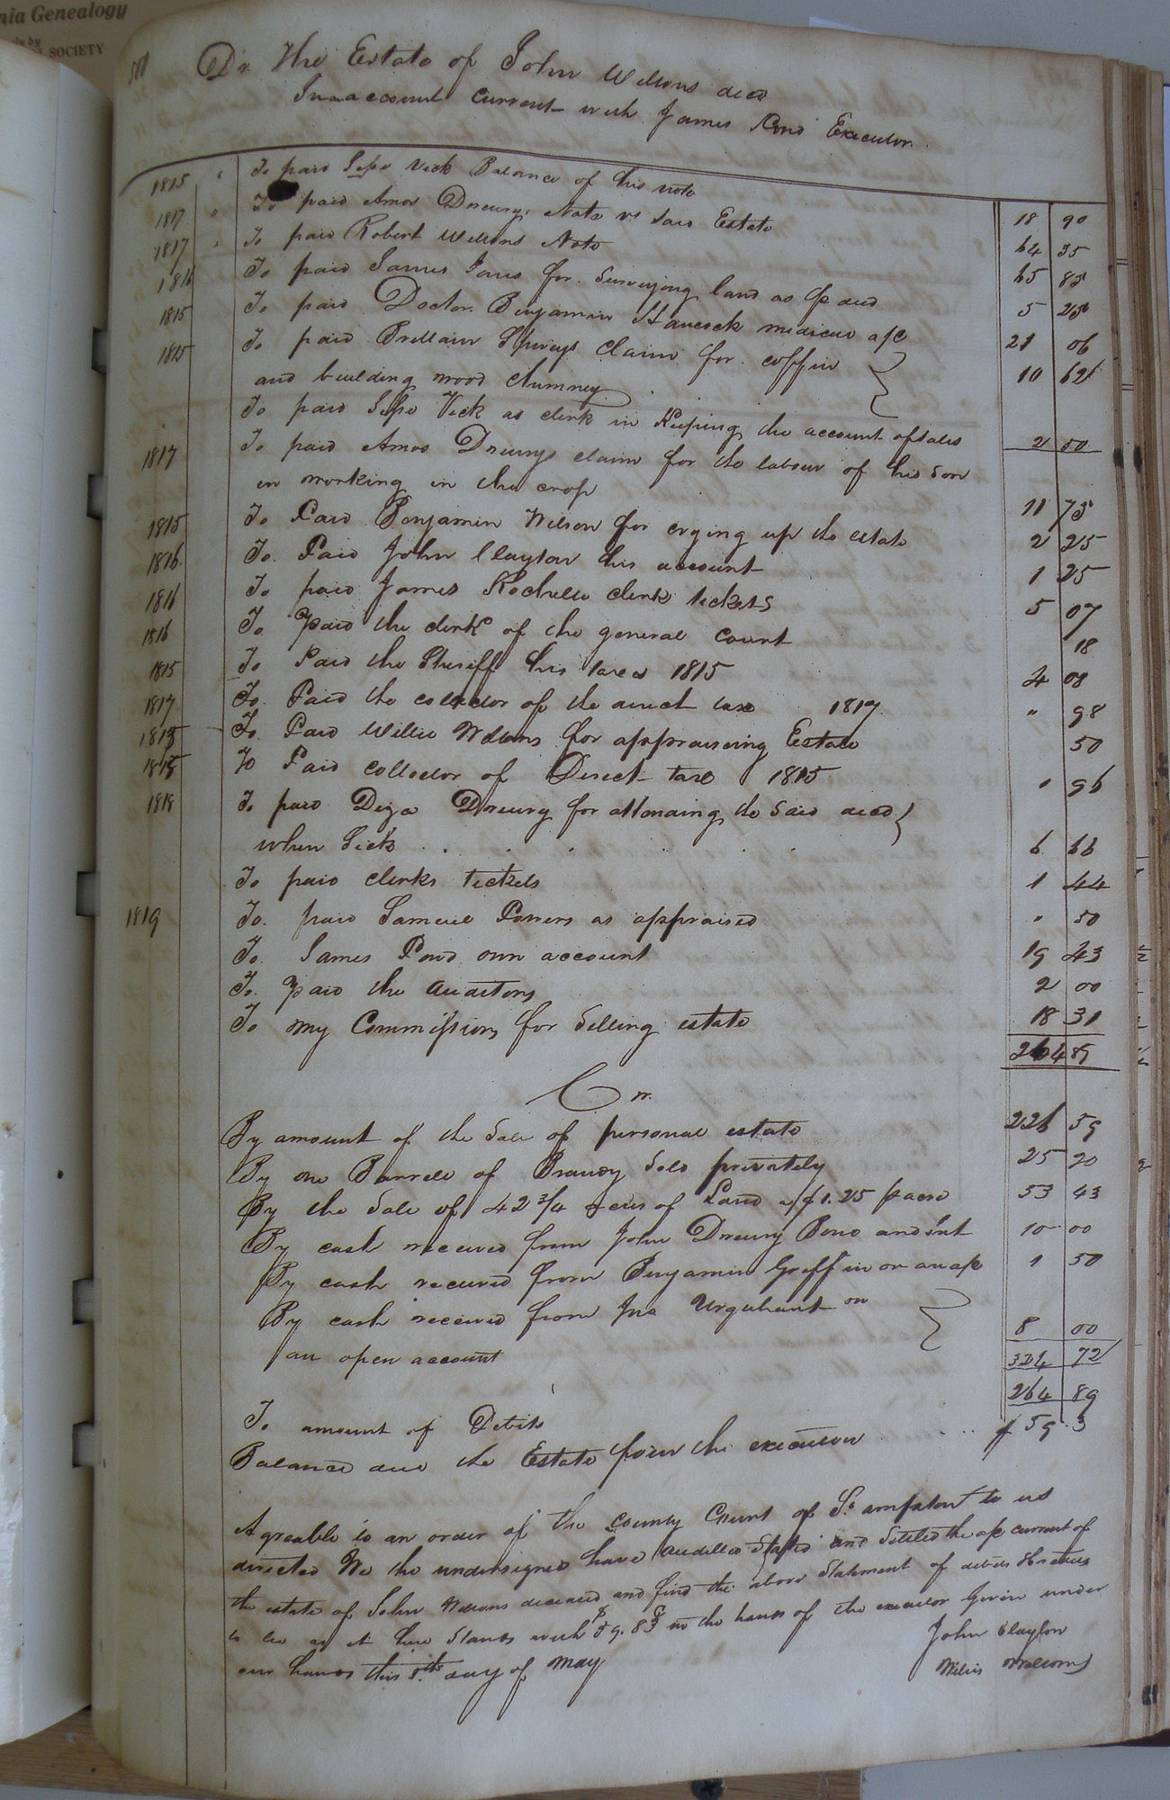 nia Genealogy
SOCIETY
Dr. The Estate of John Wellons decd
In account current with James Pond Executor.
1815 " To paid Jesse Vick Balance of his note 18 90
1817 " To paid Amos Drewry, Note vs said Estate 64 35
1817 " To paid Robert Wellons Note 65 85
1816 To paid James Jones for surveying land as p deed 5 25
1815 To paid Doctor Benjamin Hancock medicine a/c 21 06
1815 To paid Brittain Spiveys claim for coffin
and building wood chimney 10 62
To paid Jesse Vick as clerk in Keeping the account of sales 2 50
1817 To paid Amos Drewrys claim for the labour of his son
in working in the crop 11 75
1815 To Paid Benjamin Wilson for crying up the estate 2 25
1816 To Paid John Clayton his account 1 25
1816 To paid James Rochelle clerk tickets 5 07
1816 To paid the clerk of the general Court 18
1815 To Paid the Sheriff his taxes 1815 4 08
1817 To Paid the collector of the direct tax 1817 " 98
1815 To Paid Willie Wellons for appraising Estate 50
1815 To Paid collector of Direct tax 1815 " 96
1818 To paid Drewry for attending the said decd
when Sick 6 66
To paid clerks tickets 1 44
1819 To paid Samuel Powers as appraised " 50
To James Pond own account 19 43
To paid the Auditors 2 00
To my Commissions for Selling estate 18 31
264 89
Cr.
By amount of the Sale of personal estate 226 59
By one Barrell of Brandy Sold privately 25 20
By the Sale of 42 3/4 acres of Land a $1.25 p acre 53 43
By cash received from John Drewry Bond and int 10 00
By cash received from Benjamin Griffin on an a/c 1 50
By cash received from Jno Urquhart on
an open account 8 00
324 72
To amount of Debits 264 89
Balance due the Estate from the executor $ 59.3
Agreable to an order of the County Court of So ampton to us
directed We the undersigned have Audited Stated and Settled the a/c current of
the estate of John Wellons deceased and find the above Statement of debits & credits
to be as it here Stands with $59.83 in the hands of the executor Given under
our hands this 8th day of May
John Clayton
Willis Wellons